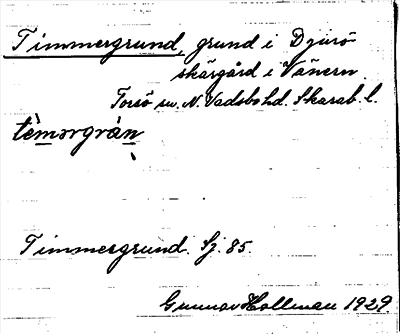 Timmergrund, grund i Djurö
skärgård i Vänern.
Torsö sn. N. Vadsbo hd. Skarab. l.
tèmərgràn
Timmergrund. Sj. 85.
Gunnar Hallman 1929.